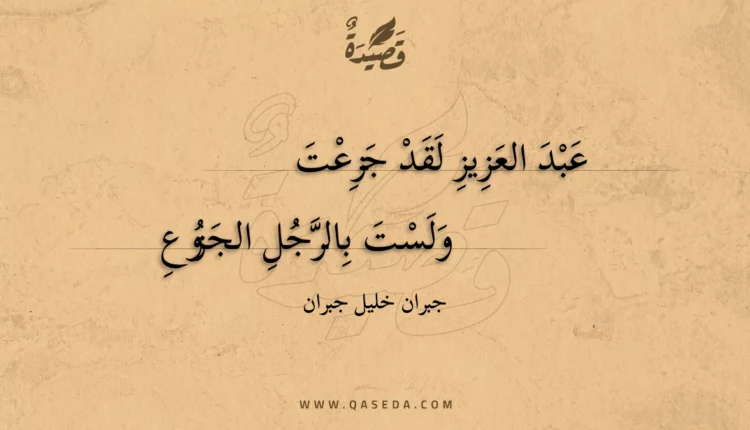 قَصِيْدَةٌ
عَبْدَ العَزِيزِ لَقَدْ جَزِعْتَ
وَلَسْتَ بِالرَّجُلِ الجَزُوعِ
جبران خليل جبران
WWW.QASEDA.COM